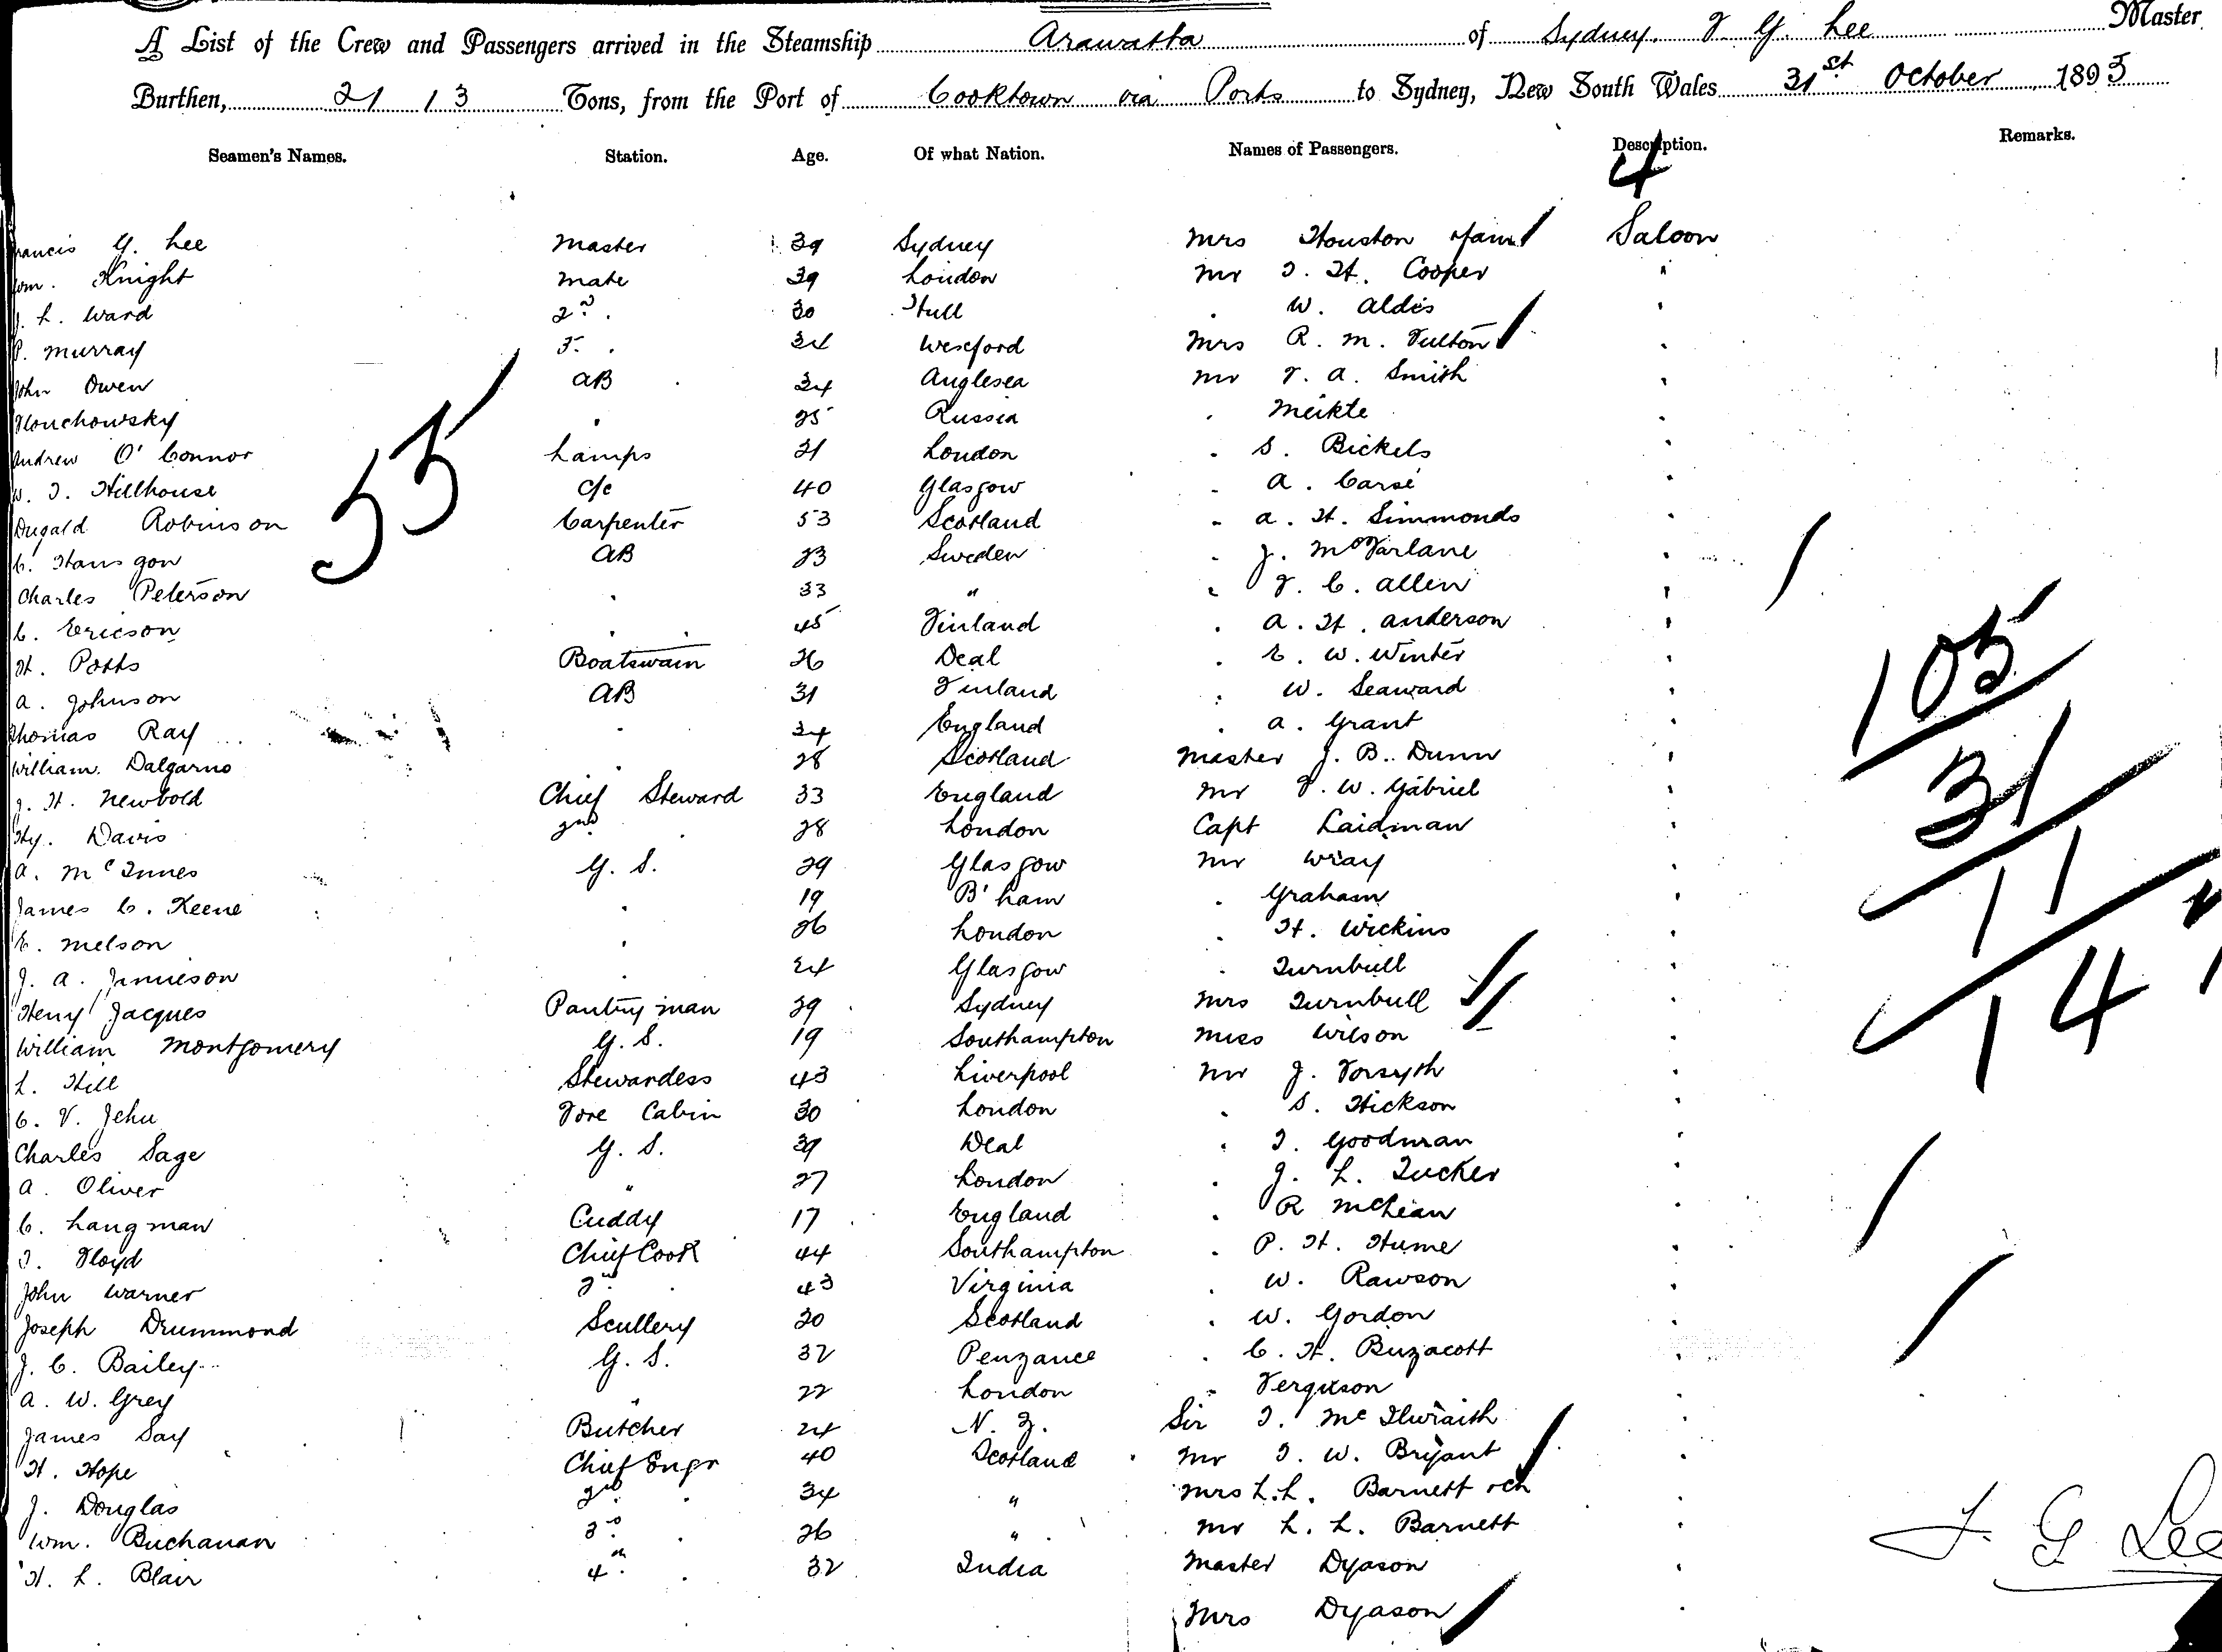 A List of the Crew and Passengers arrived in the Steamship Arawatta of Sydney. F G. Lee Master
Burthen, 2113 Tons, from the Port of Cooktown via Ports to Sydney, New South Wales 31st October 1893
Seamen's Names. Station. Age. Of what Nation. Names of Passengers. Description. Remarks.
4
Francis G. Lee Master 39 Sydney Mrs Houston Saloon
Wm. Knight Mate 39 London Mr T. H. Cooper "
J. L. Ward 2nd . 30 Hull . W. Aldis "
P. Murray 3. . 34 Wexford Mrs R. M. Fulton "
John Owen AB . 24 Anglesea Mr F. A. Smith "
" 25 Russia " Meikle "
Andrew O'Connor Lamps 21 London " S. Bickels "
W. T. Hillhouse C/c 40 Glasgow " A. Carse "
Dugald Robinson Carpenter 53 Scotland " A. H. Simmonds "
C. Hansgon AB 23 Sweden " J. McFarlane "
Charles Peterson " 33 " " F. C. Allen "
C. Ericson " . 45 Finland " A. H. Anderson "
H. Potts Boatswain 26 Deal " E. W. Winter "
A. Johnson AB 31 Finland " W. Seaward "
Thomas Ray " 24 England " A. Grant "
William. Dalgarno " 28 Scotland Master J. B. Dunn "
J. H. Newbold Chief Steward 33 England Mr F. W. Gabriel "
Hy. Davis 2nd . 28 London Capt Laidman "
A. McInnes G. S. 29 Glasgow Mr Wray "
James C. Keene " 19 B'ham " Graham "
E. Melson " 26 London " H. Wickins "
J. A. Jamieson " 24 Glasgow " Turnbull "
Heny Jacques Pantry man 29 Sydney Mrs Turnbull "
William Montgomery G. S. 19 Southampton Miss Wilson "
L. Hill Stewardess 43 Liverpool Mr J. Forsyth "
C. V. Jehu Fore Cabin 30 London " S. Hickson "
Charles Sage G. S. 39 Deal " T. Goodman "
A. Oliver " 27 London " J. L. Tucker "
C. Langman Cuddy 17 England " R McLean "
T. Floyd Chief Cook 44 Southampton " P. H. Hume "
John Warner 2nd . 43 Virginia " W. Rawson "
Joseph Drummond Scullery 20 Scotland " W. Gordon "
J. C. Bailey G. S. 32 Penzance " C. H. Buzacott "
A. W. Grey " 22 London " Ferguson "
James Say Butcher 24 N. Z. Sir T. McIlwraith "
H. Hope Chief Engr 40 Scotland Mr T. W. Bryant "
J. Douglas 2nd . 34 " Mrs L. L. Barnett & ch "
Wm. Buchanan 3rd . 26 " Mr L. L. Barnett "
H. L. Blair 4th . 32 India Master Dyason "
Mrs Dyason "
55
105
31
11
14
F. G. Lee